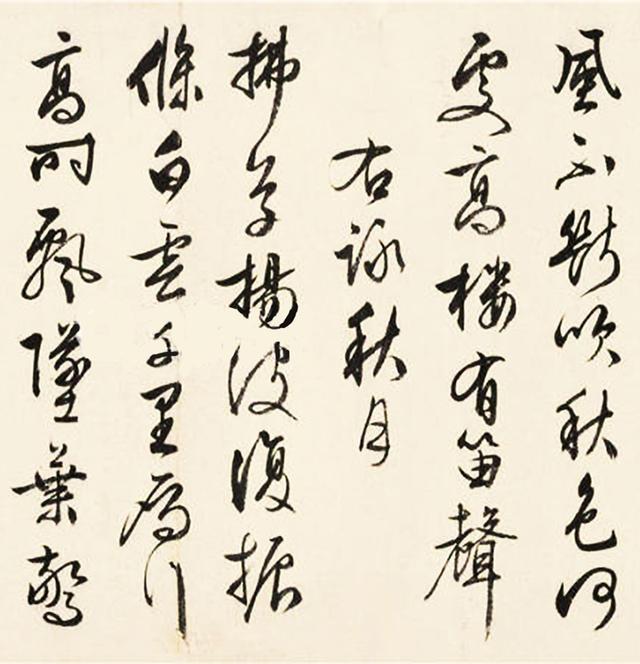 風不斷吹秋色何
處高樓有笛聲
右詠秋月
拂草揚波復振
條白雲千里雁行
高時飄墜葉驚